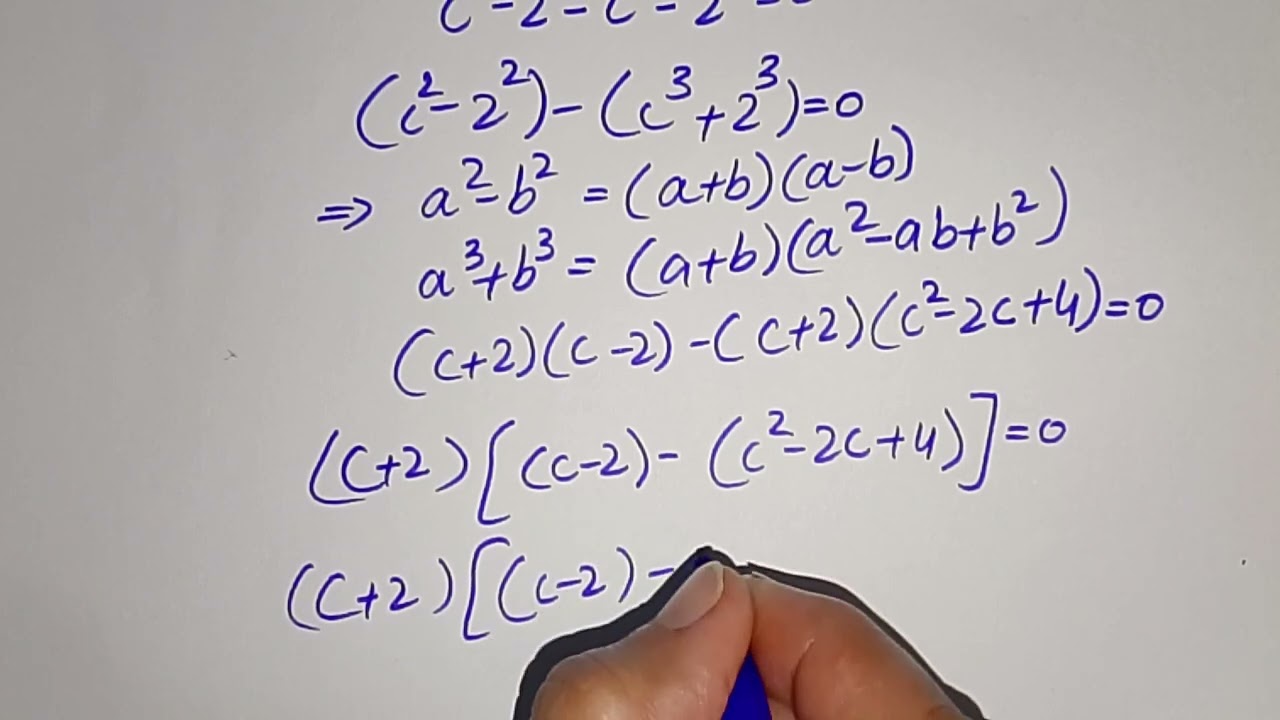 (c²-2²)-(c³+2³)=0
⇒ a²-b² = (a+b)(a-b)
a³+b³ = (a+b)(a²-ab+b²)
(c+2)(c-2)-(c+2)(c²-2c+4)=0
(c+2)[(c-2)-(c²-2c+4)]=0
(c+2)[(c-2)-